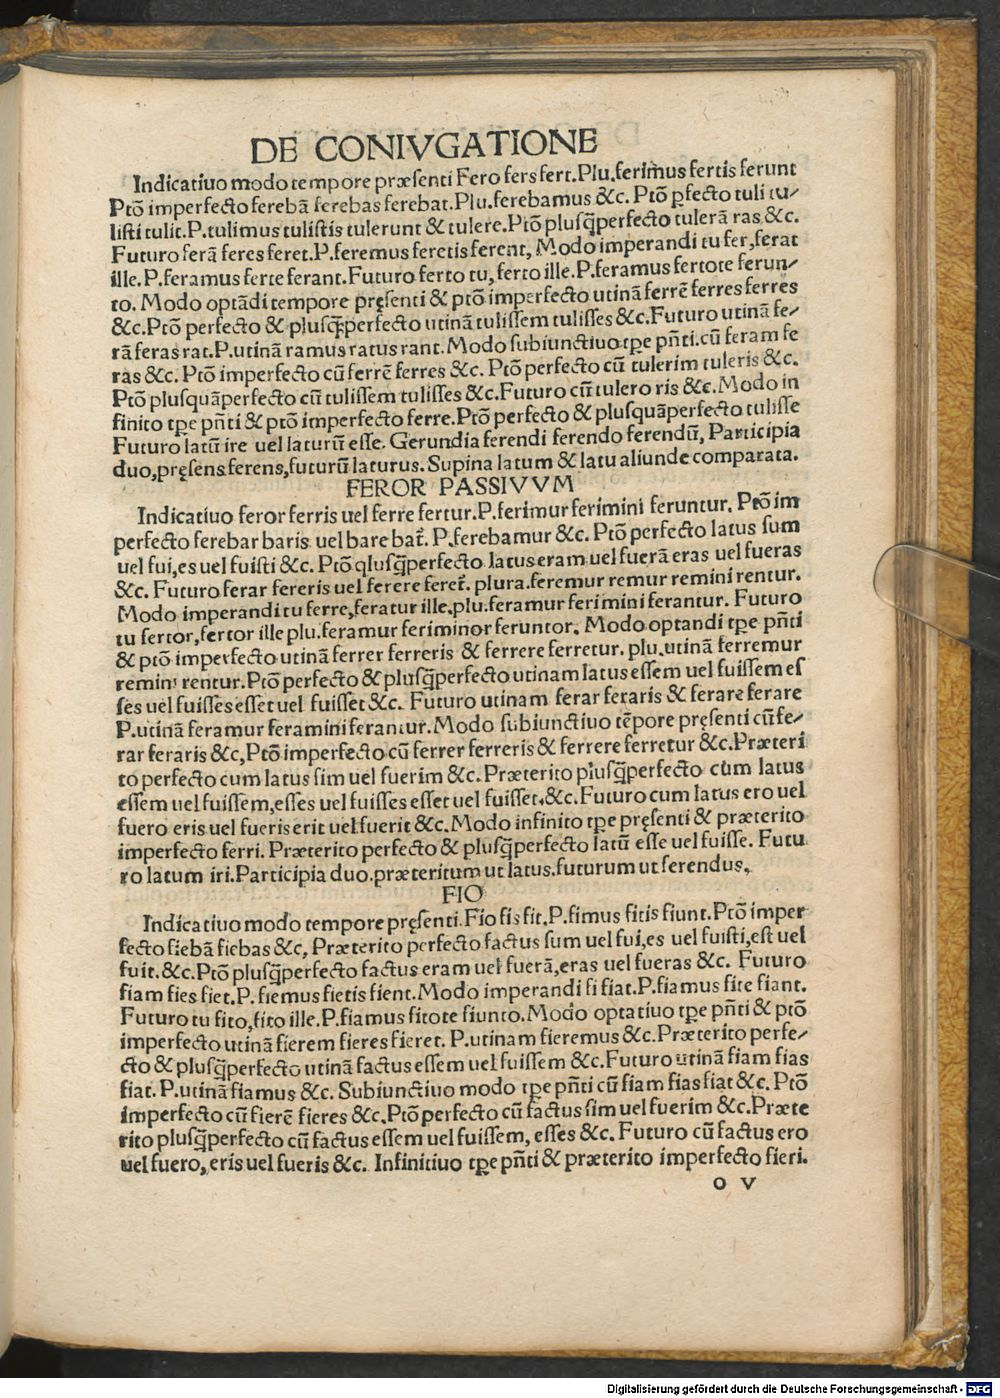 DE CONIVGATIONE
Indicatiuo modo tempore præsenti Fero fers fert. Plu. ferimus fertis ferunt
Ptõ imperfecto ferebã ferebas ferebat. Plu. ferebamus &c. Ptõ pfecto tuli tu/
listi tulit. P. tulimus tulistis tulerunt & tulere. Ptõ plusq̃perfecto tulerã ras &c.
Futuro ferã feres feret. P. feremus feretis ferent, Modo imperandi tu fer, ferat
ille. P. feramus ferte ferant. Futuro ferto tu, ferto ille. P. feramus fertote ferun/
to. Modo optãdi tempore pręsenti & ptõ imperfecto utinã ferrẽ ferres ferres
&c. Ptõ perfecto & plusq̃perfecto utinã tulissem tulisses &c. Futuro utinã fe/
rã feras rat. P. utinã ramus ratus rant. Modo subiunctiuo tpe pñti. cũ feram fe
ras &c. Ptõ imperfecto cũ ferrẽ ferres &c. Ptõ perfecto cũ tulerim tuleris &c.
Ptõ plusquãperfecto cũ tulissem tulisses &c. Futuro cũ tulero ris &c. Modo in
finito tpe pñti & ptõ imperfecto ferre. Ptõ perfecto & plusquãperfecto tulisse
Futuro latũ ire uel laturũ esse. Gerundia ferendi ferendo ferendũ, Participia
duo, pręsens ferens, futurũ laturus. Supina latum & latu aliunde comparata.
FEROR PASSIVVM
Indicatiuo feror ferris uel ferre fertur. P. ferimur ferimini feruntur. Ptõ im
perfecto ferebar baris uel bare bat̃. P. ferebamur &c. Ptõ perfecto latus sum
uel fui, es uel fuisti &c. Ptõ qlusq̃perfecto latus eram uel fuerã eras uel fueras
&c. Futuro ferar fereris uel ferere feret̃. plura. feremur remur remini rentur.
Modo imperandi tu ferre, feratur ille. plu. feramur ferimini ferantur. Futuro
tu fertor, fertor ille plu. feramur feriminor feruntor. Modo optandi tpe pñti
& ptõ imperfecto utinã ferrer ferreris & ferrere ferretur. plu. utinã ferremur
remini rentur. Ptõ perfecto & plusq̃perfecto utinam latus essem uel fuissem es
ses uel fuisses esset uel fuisset &c. Futuro utinam ferar feraris & ferare ferare
P. utinã feramur feramini ferantur. Modo subiunctiuo tẽpore pręsenti cũ fe/
rar feraris &c, Ptõ imperfecto cũ ferrer ferreris & ferrere ferretur &c. Præteri
to perfecto cum latus sim uel fuerim &c. Præterito plusq̃perfecto cum latus
essem uel fuissem, esses uel fuisses esset uel fuisset, &c. Futuro cum latus ero uel
fuero eris uel fueris erit uel fuerit &c. Modo infinito tpe pręsenti & præterito
imperfecto ferri. Præterito perfecto & plusq̃perfecto latũ esse uel fuisse. Futu
ro latum iri. Participia duo. præteritum ut latus. futurum ut ferendus.
FIO
Indicatiuo modo tempore pręsenti. Fio fis fit. P. fimus fitis fiunt. Ptõ imper
fecto fiebã fiebas &c, Præterito perfecto factus sum uel fui, es uel fuisti, est uel
fuit. &c. Ptõ plusq̃perfecto factus eram uel fuerã, eras uel fueras &c. Futuro
fiam fies fiet. P. fiemus fietis fient. Modo imperandi fi fiat. P. fiamus fite fiant.
Futuro tu fito, fito ille. P. fiamus fitote fiunto. Modo optatiuo tpe pñti & ptõ
imperfecto utinã fierem fieres fieret. P. utinam fieremus &c. Præterito perfe/
cto & plusq̃perfecto utinã factus essem uel fuissem &c. Futuro utinã fiam fias
fiat. P. utinã fiamus &c. Subiunctiuo modo tpe pñti cũ fiam fias fiat &c. Ptõ
imperfecto cũ fierẽ fieres &c. Ptõ perfecto cũ factus sim uel fuerim &c. Præte
rito plusq̃perfecto cũ factus essem uel fuissem, esses &c. Futuro cũ factus ero
uel fuero, eris uel fueris &c. Infinitiuo tpe pñti & præterito imperfecto fieri.
o v
Digitalisierung gefördert durch die Deutsche Forschungsgemeinschaft - DFG